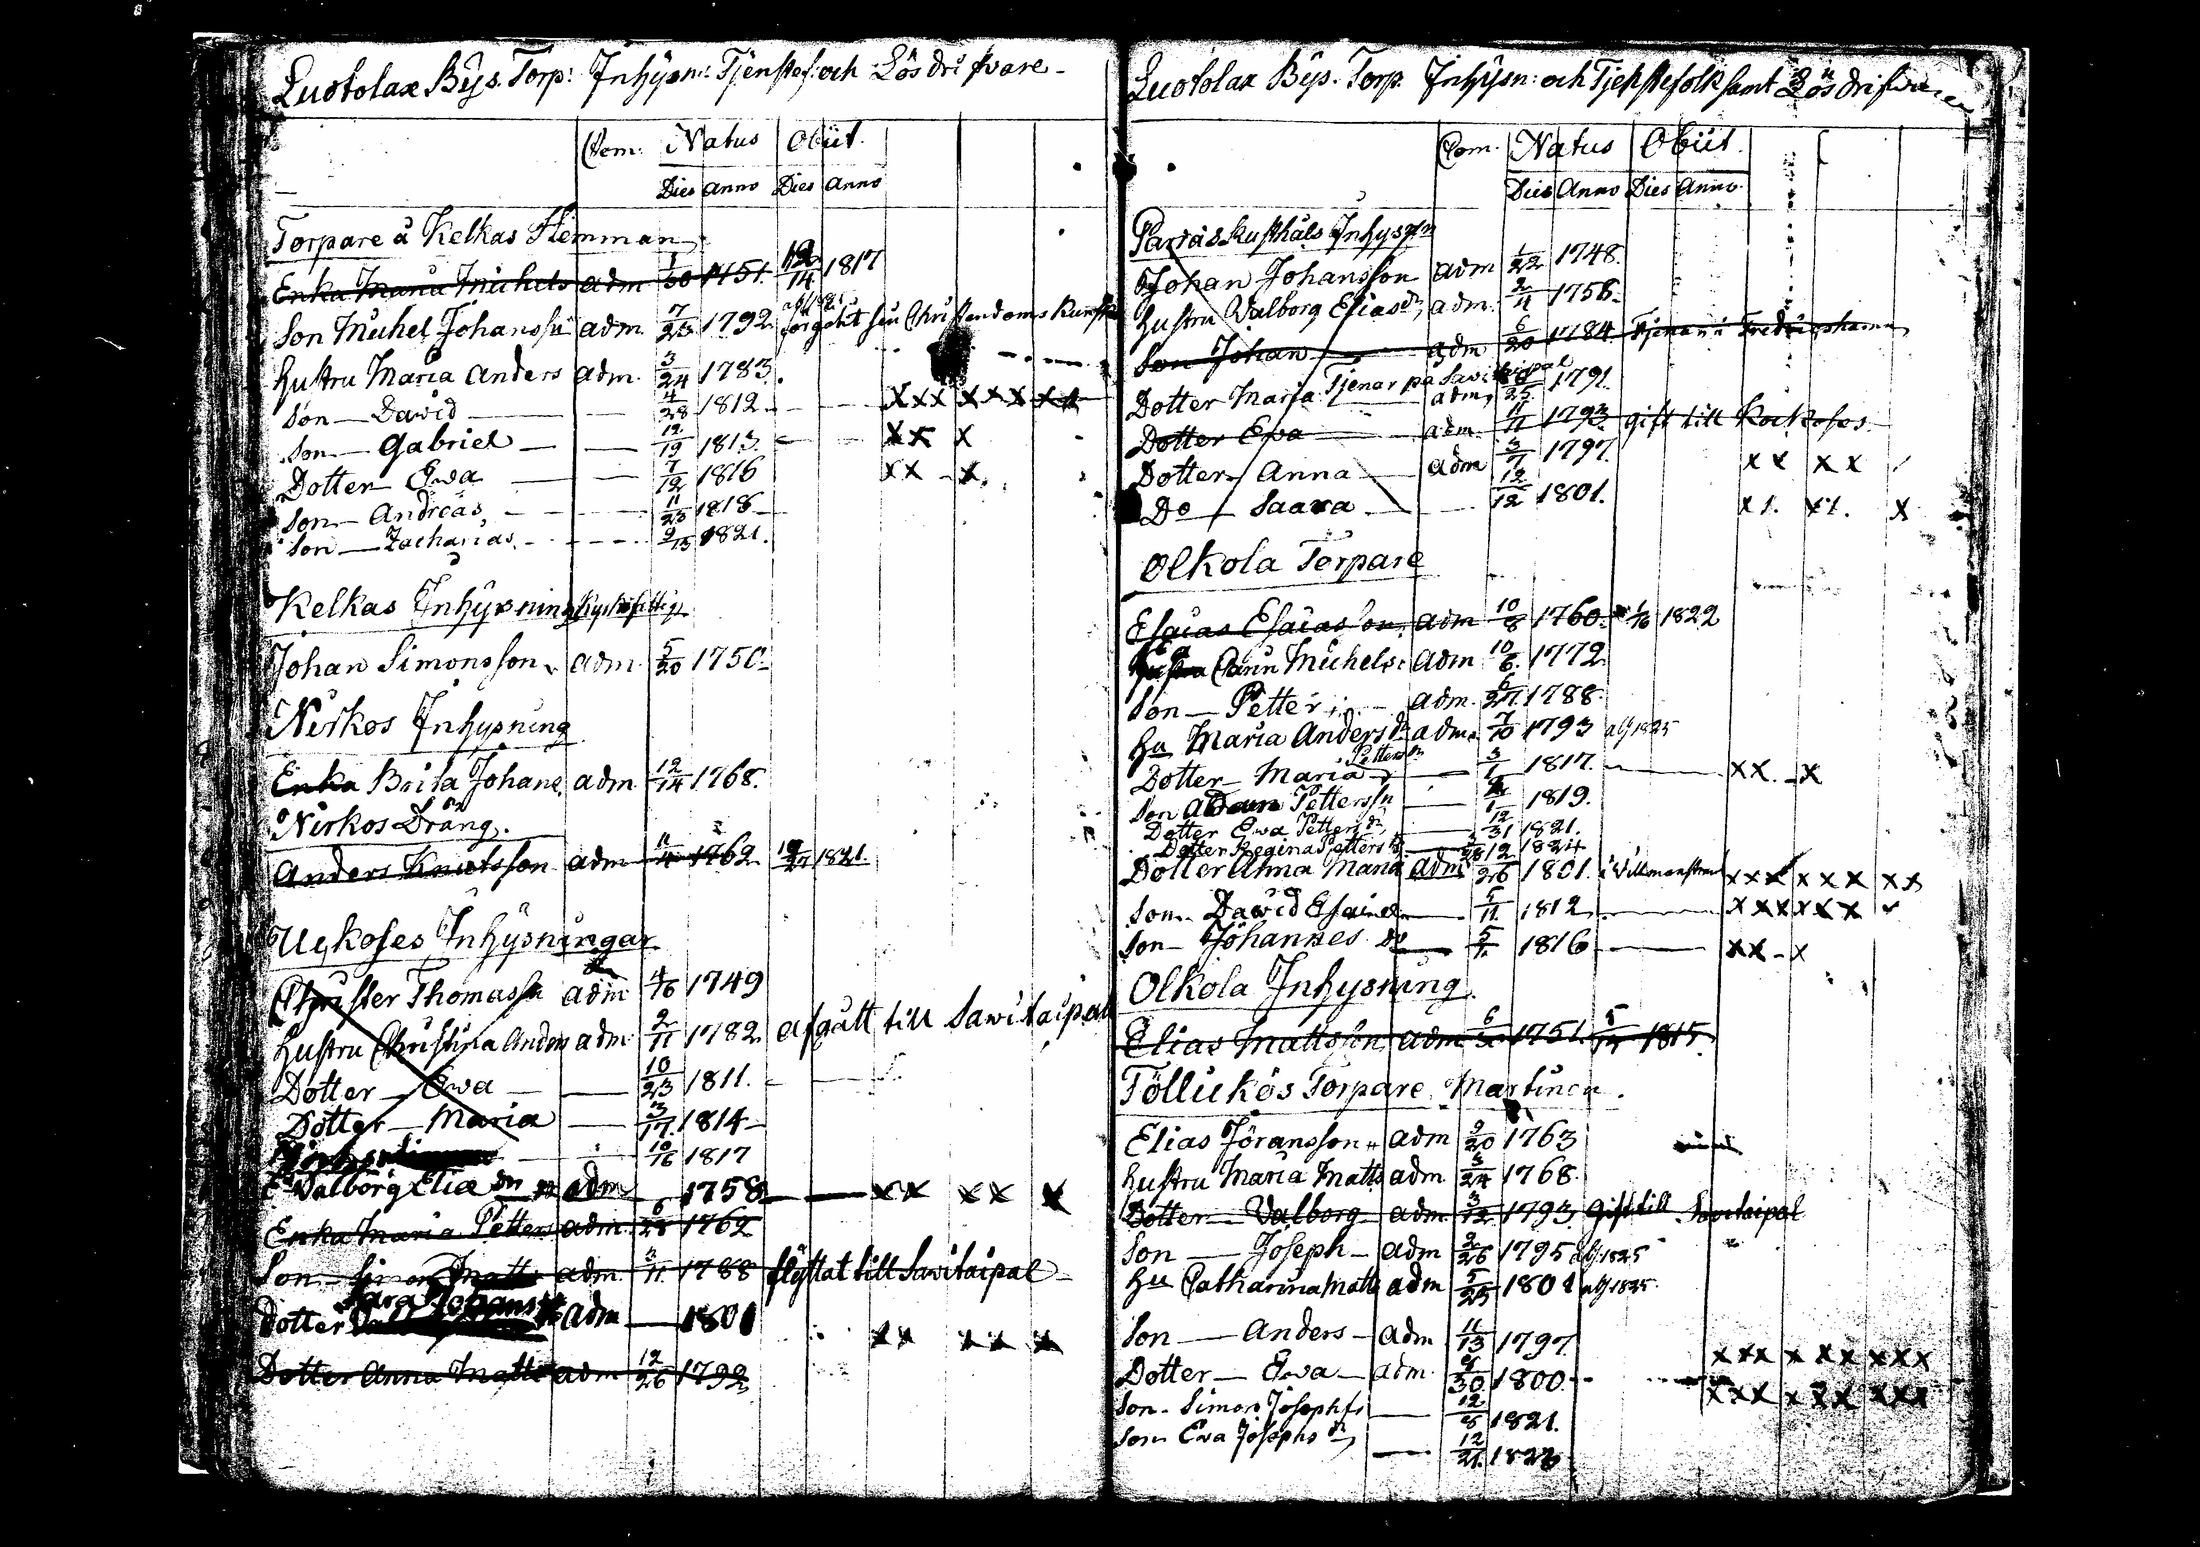 Luotolax Bys. Torp: Inhysn: Tjenstef: och Lösdrifvare
Com. Natus Obiit.
Dies Anno Dies Anno
Torpare å Kelkas Hemman
Enka Maria Michels adm 1/30 1751. 12/14 1817
Son Michel Johanss adm. 7/23 1792.
Hustru Maria Anders adm. 3/24 1783.
Son David 4/28 1812 xxx xxx xx
Son Gabriel 12/19 1813. xx x
Dotter Ewa 7/12 1816 xx - x.
Son Andreas 11/23 1818
Son Zacharias. 9/15 1821.
Kelkas Inhysning
Johan Simonsson adm. 5/20 1750
Nirkos Inhysning
Enka Brita Johans adm 12/14 1768.
Nirkos Dräng.
Anders Knutsson adm 11/4 1762 1821.
Uckoses Inhysningar
Christer Thomass adm 4/16 1749
Hustru Christina Anders adm 2/11 1782 afgått till Sawitaipal
Dotter Ewa 10/23 1811.
Dotter Maria 3/17 1814
10/16 1817
Valborg Eliæ dr adm 1758 xx xx x
Enka Maria Petters adm. 6/28 1762
Son Simon Matts adm. 1788 flyttat till Sawitaipal
Dotter Sara Johans adm 1801 xx xx x
Dotter Anna Matts adm 12/26 1792
Luotolax Bys. Torp. Inhysn: och Tjenstefolk samt Lösdrifvare
Com. Natus Obiit.
Dies Anno Dies Anno
Inhysn
Johan Johansson adm 1/22 1748.
Hustru Valborg Elias dr adm. 2/11 1758
Son Johan adm 6/20 1784 Tjenar i Fredrichshamn
Dotter Maria Tjenar på Sawitaipal adm, 1791.
Dotter Ewa adm. 11/11 1793. gift till Kockoses
Dotter Anna adm 3/7 1797. xx xx
Do Saara 12/12 1801. x x x
Olkola Torpare
Esaias Esaiasson adm 10/8 1760 1822
Carin Michels: adm 10/6. 1772
Son Petter adm. 6/27. 1788.
Hu Maria Anders dr adm. 7/10 1793 1825
Dotter Maria Petters dr 3/1 1817. xx - x
Son Adam Petterss 1819.
Dotter Ewa Petters dr 12/31 1821.
Dotter Regina Petters dr 1824
Dotter Anna Maria adm 12/26 1801. i Villmanstrand xxx xxx xx
Son David Esaiæ 5/11 1812 xxx xxx
Son Johannes do 5/1 1816 xx - x
Olkola Inhysning.
Elias Mattsson adm 1751. 1815.
Töllickös Torpare Martinen.
Elias Jöransson adm 9/20 1763
Hustru Maria Matts adm. 3/24 1768.
Dotter Valborg adm 3/12 1793. Gift till Sawitaipal
Son Joseph adm 2/26 1795 1825
Hu Catharina Matts adm 5/25 1801 1825.
Son Anders adm 11/13 1797 xxx xxx xxx
Dotter Ewa adm. 1800. xxx xxx xxx
Son Simon Josephs 12/8 1821.
Son Ewa Josephs dr 12/21.